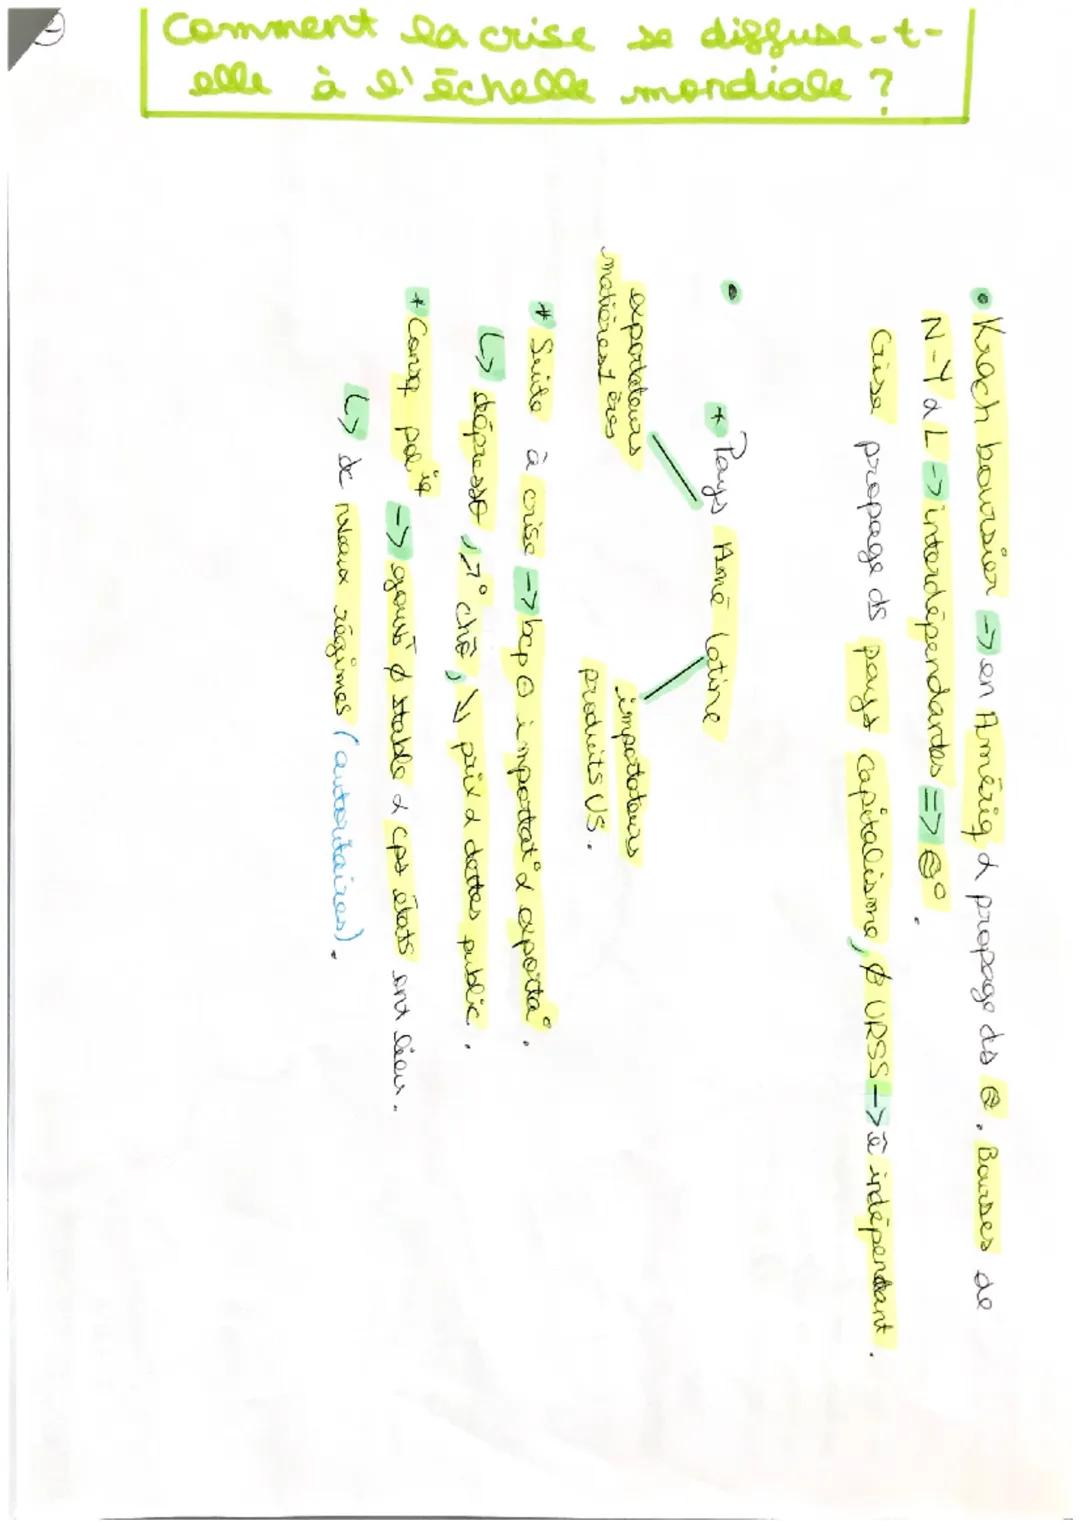 Comment la crise se diffuse-t-
elle à l'échelle mondiale ?
• Krach boursier -> en Amériq & propage ds @. Bourses de
N-Y & L -> interdépendantes => @°.
Crise propage ds pays capitalisme, ∅ URSS -> ê indépendant.
• * Pays Amé latine
exportateurs
matières 1ères
importateurs
produits US.
* Suite à crise -> bcp ⊖ importat° & exporta°.
↳ dépress°, ↗° chô, ↘ prix & dettes public.
* Consq poliq -> gouv ∅ stable & cps états ont lieu.
↳ de nveaux régimes (autoritaires).